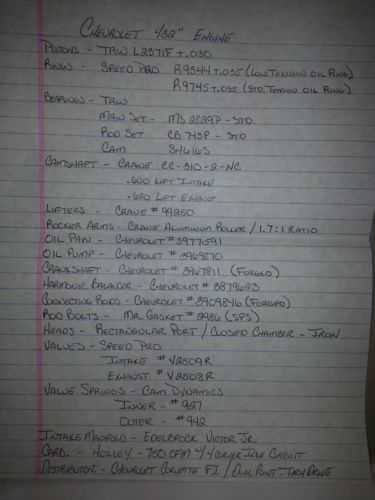 CHEVROLET 432" ENGINE
PISTONS - TRW L2371F +.030
RINGS - SPEED PRO R9344+.035 (LOW TENSION OIL RING)
R9745+.035 (STD. TENSION OIL RING)
BEARINGS - TRW
MAIN SET - MS 2829P - STD.
ROD SET CB 743P - STD
CAM SH616S
CAMSHAFT - CRANE CC-310-2-NC
.600 LIFT INTAKE
.620 LIFT EXHAUST
LIFTERS - CRANE #99250
ROCKER ARMS - CRANE ALUMINUM ROLLER / 1.7:1 RATIO
OIL PAN - CHEVROLET #3977591
OIL PUMP - CHEVROLET #3969870
CRANKSHAFT - CHEVROLET #3967811 (FORGED)
HARMONIC BALANCER - CHEVROLET #3879623
CONNECTING RODS - CHEVROLET #3909846 (FORGED)
ROD BOLTS - MR. GASKET #2986 (SPS)
HEADS - RECTANGULAR PORT / CLOSED CHAMBER - IRON
VALVES - SPEED PRO
INTAKE # V2509R
EXHAUST # V2503R
VALVE SPRINGS - CAM DYNAMICS
INNER - #927
OUTER - #942
INTAKE MANIFOLD - EDELBROCK VICTOR JR.
CARB. - HOLLEY - 750 CFM W/4 CORNER IDLE CIRCUIT
DISTRIBUTOR - CHEVROLET CORVETTE FI / DUAL POINT - TACH DRIVE